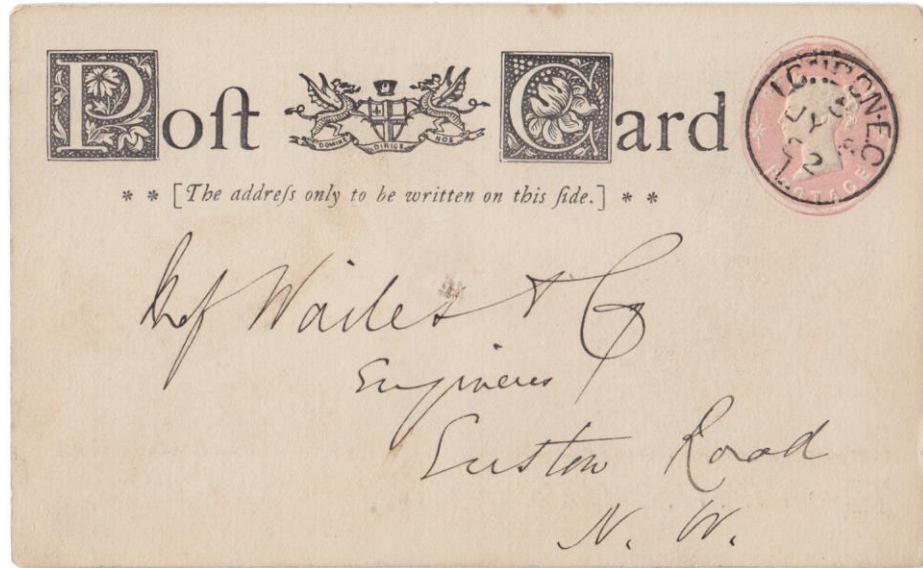 Poſt Card
DOMINE DIRIGE NOS
LONDON·E.C
JY
2
POSTAGE
* * [The addreſs only to be written on this ſide.] * *
Wailes & Co
Engineers
Euston Road
N. W.